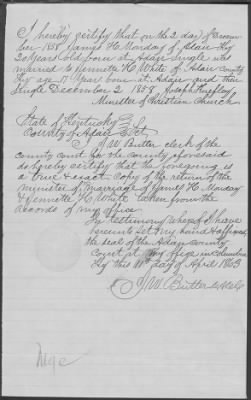 I hereby certify that on the 2 day of Decem
ber 1858 James H Monday of Adair Ky
20 years old born at Adair Single was
married to Jennette H White of Adair county
Ky age 17 years born at Adair and then
Single December 2 1858 Joseph
Minister of Christian Church
State of Kentucky
County of Adair Sct
I W Butler clerk of the
county court for the county aforesaid
do hereby certify that the foregoing is
a true & exact copy of the return of the
minister of Marriage of James H Monday
& Jennette H White taken from the
records of my office
In testimony whereof I have
hereunto set my hand & affixed
the seal of the Adair county
court at my office in Columbia
Ky this day of April 1863
W Butler